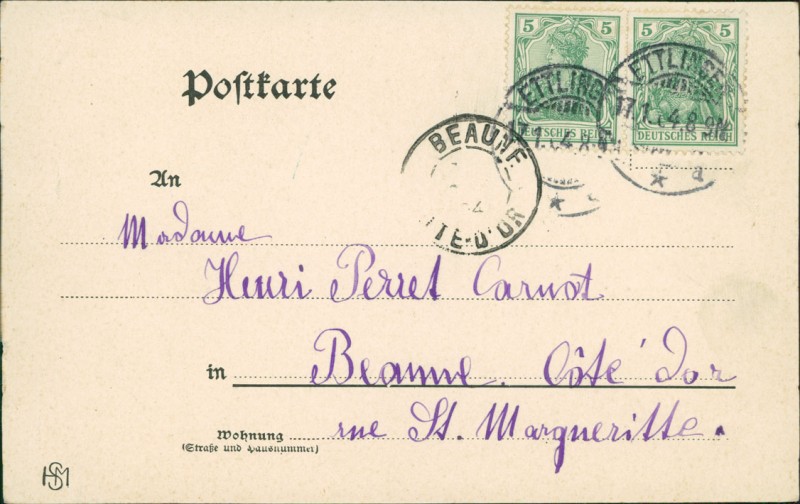 5 5 5 5
DEUTSCHES REICH DEUTSCHES REICH
ETTLINGEN
17.1.04.8-9N.
* a
ETTLINGEN
*
BEAUNE
CÔTE-D'OR
Poſtkarte
An
Madame
Henri Perret Carnot
in Beaune. Côte d'or
Wohnung rue St. Margueritte.
(Straße und Hausnummer)
HSM